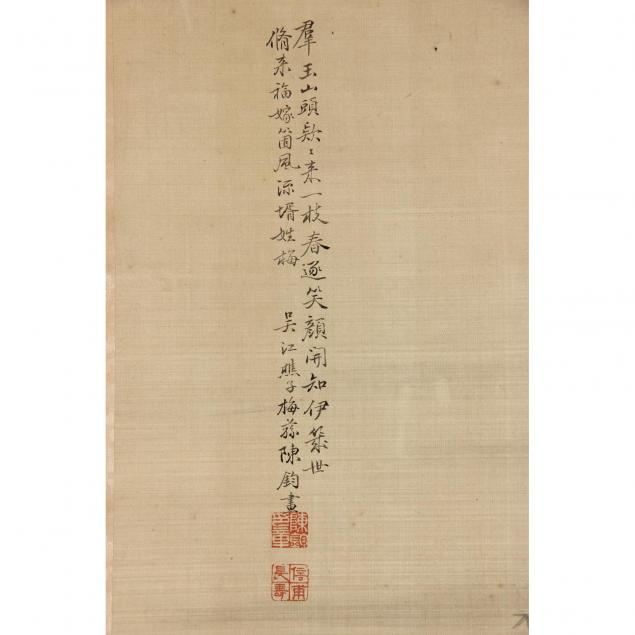 羣玉山頭欵〻來一枝春逐笑顏開知伊幾世
脩來福嫁箇風流壻姓梅
吳江瞧子梅蓀陳鈞畫
信甫
長壽